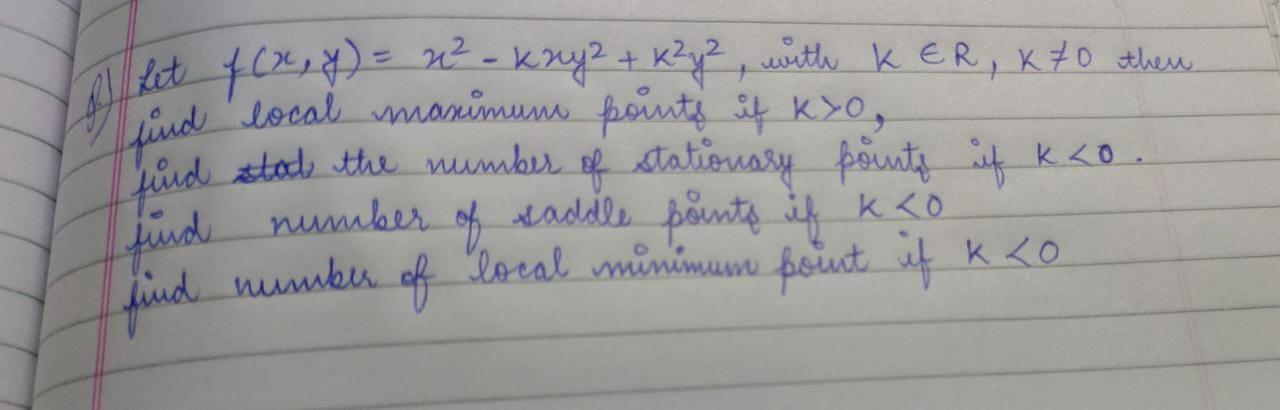 Q) Let f(x, y) = x² - kxy² + k²y², with k ∈ R, k ≠ 0 then
find local maximum points if k > 0,
find the number of stationary points if k < 0.
find number of saddle points if k < 0
find number of local minimum point if k < 0